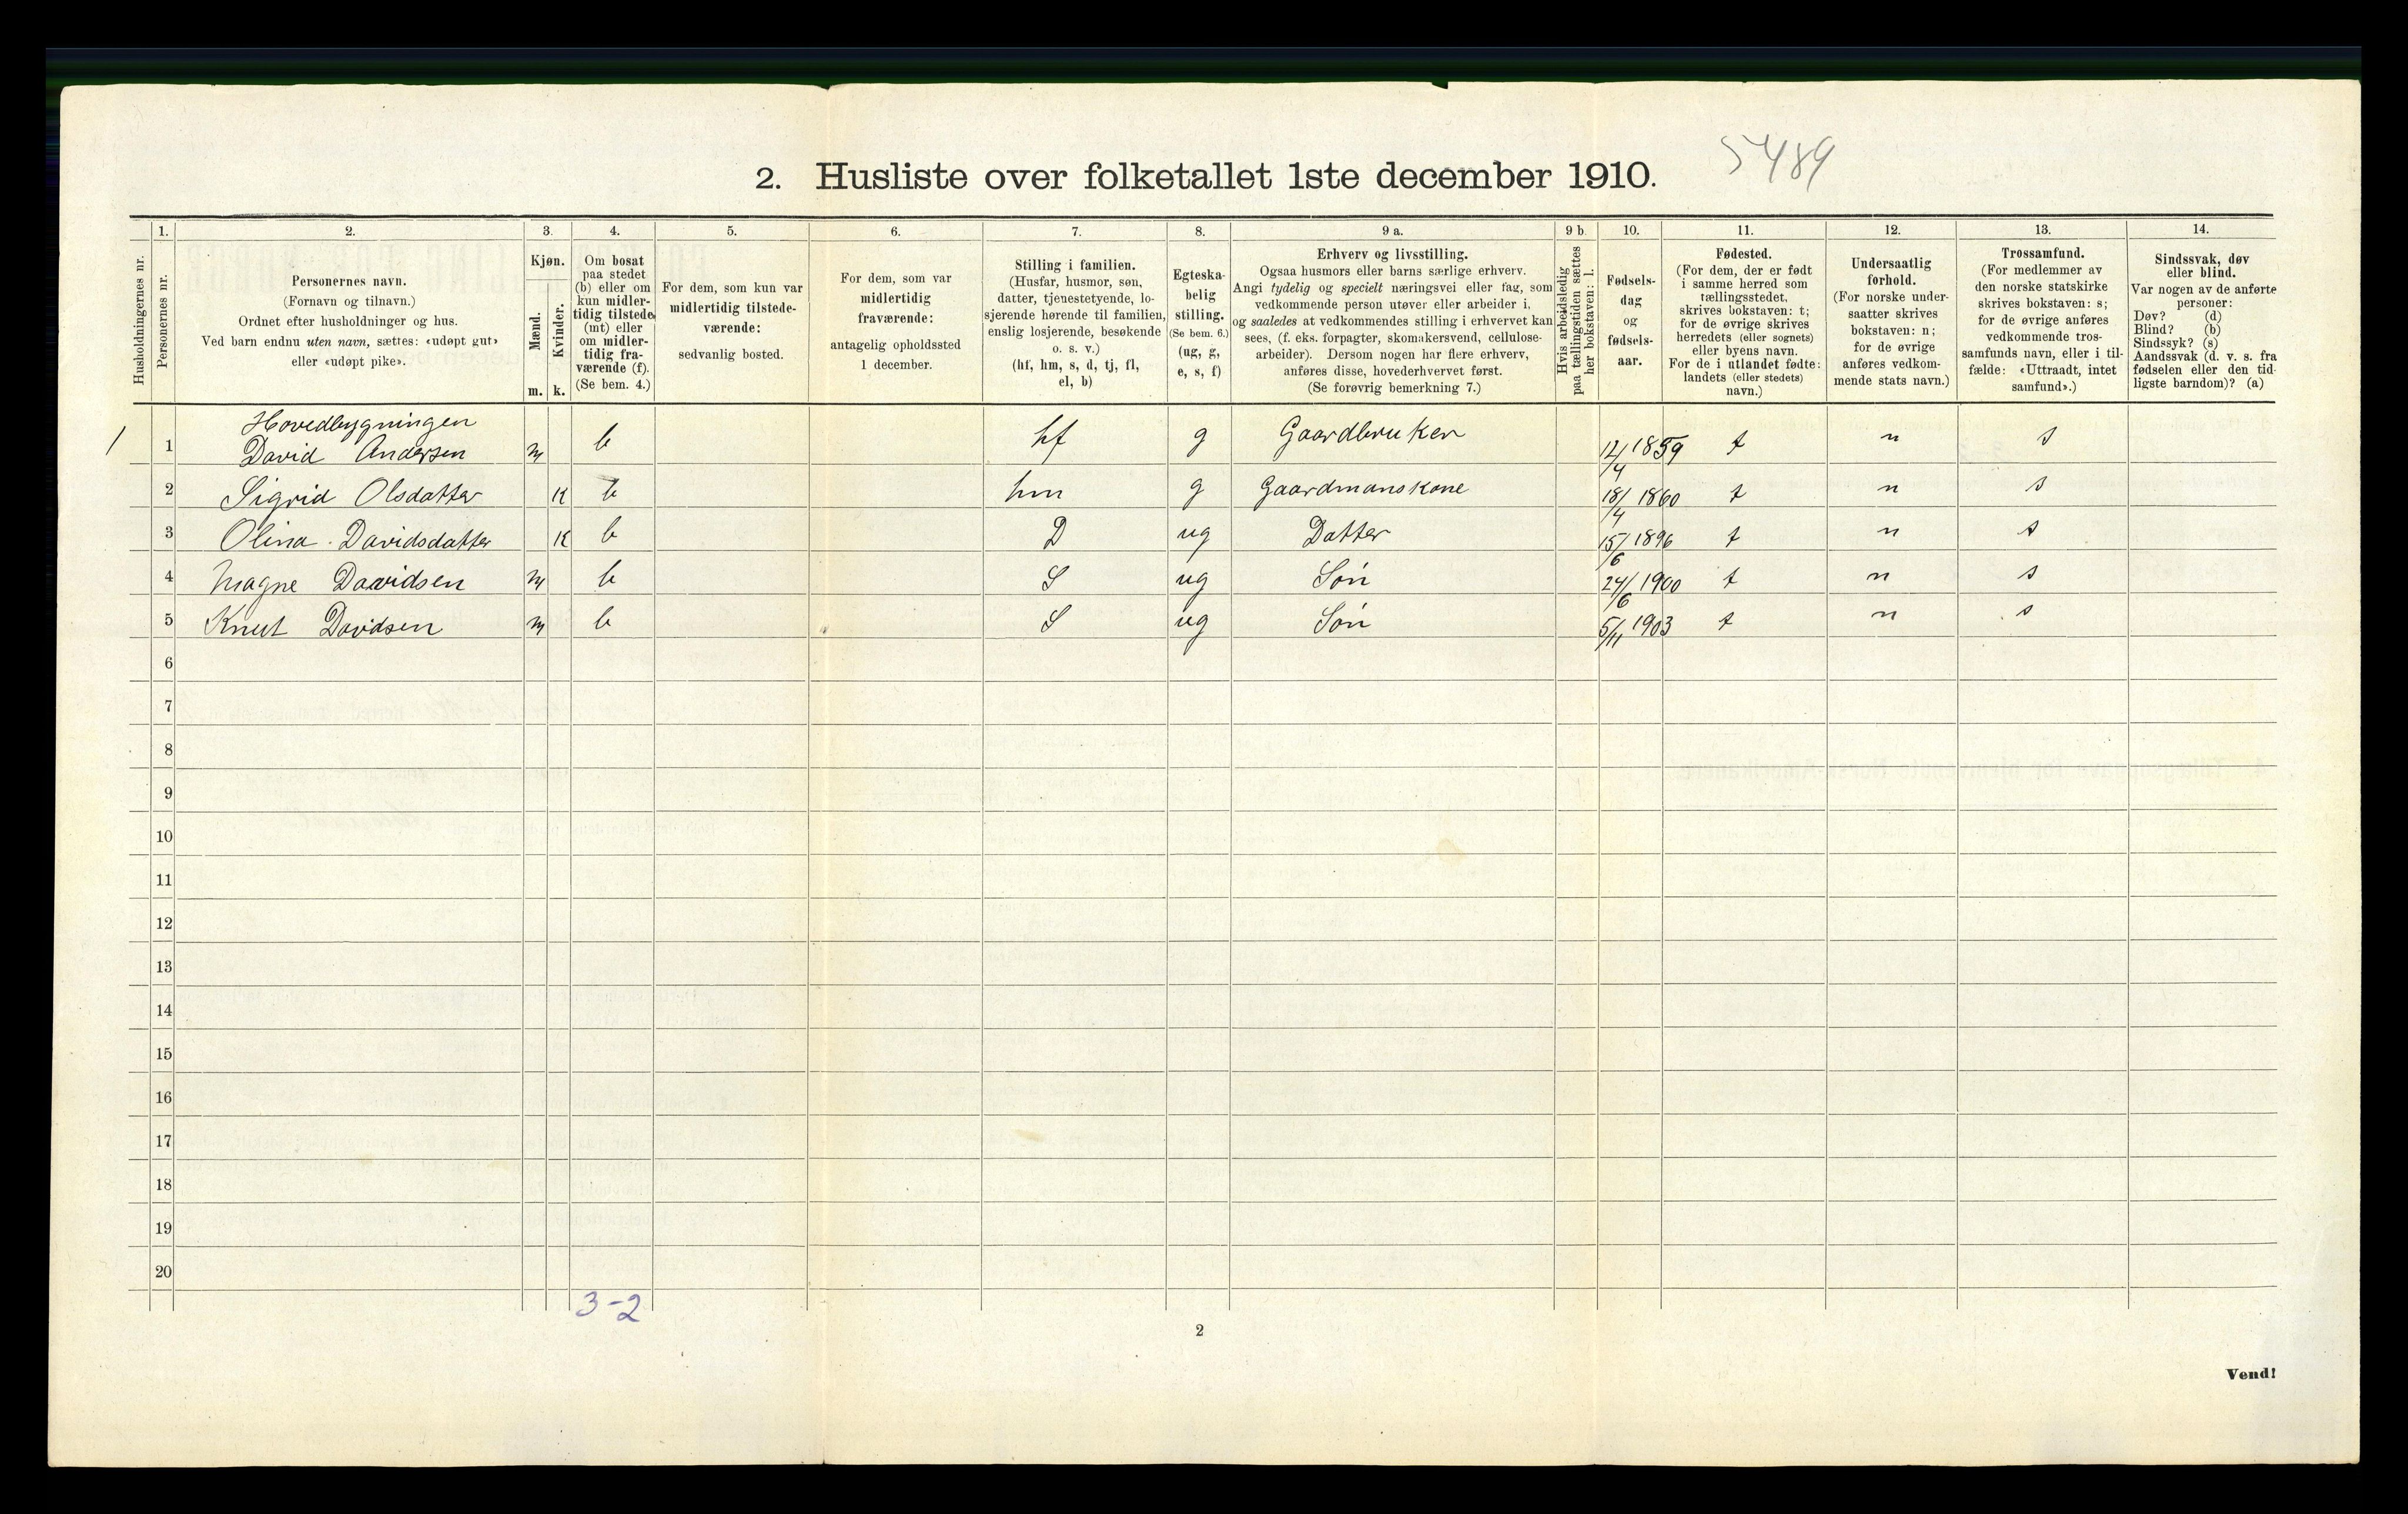 5489
2. Husliste over folketallet 1ste december 1910.
1. 2. 3. 4. 5. 6. 7. 8. 9 a. 9 b. 10. 11. 12. 13. 14.
Husholdningernes nr.
Personernes nr.
Personernes navn.
(Fornavn og tilnavn.)
Ordnet efter husholdninger og hus.
Ved barn endnu uten navn, sættes: «udøpt gut»
eller «udøpt pike».
Kjøn.
Mænd.
m.
Kvinder.
k.
Om bosat
paa stedet
(b) eller om
kun midler-
tidig tilstede
(mt) eller
om midler-
tidig fra-
værende (f).
(Se bem. 4.)
For dem, som kun var
midlertidig tilstede-
værende:
sedvanlig bosted.
For dem, som var
midlertidig
fraværende:
antagelig opholdssted
1 december.
Stilling i familien.
(Husfar, husmor, søn,
datter, tjenestetyende, lo-
sjerende hørende til familien,
enslig losjerende, besøkende
o. s. v.)
(hf, hm, s, d, tj, fl,
el, b)
Egteska-
belig
stilling.
(Se bem. 6.)
(ug, g,
e, s, f)
Erhverv og livsstilling.
Ogsaa husmors eller barns særlige erhverv.
Angi tydelig og specielt næringsvei eller fag, som
vedkommende person utøver eller arbeider i,
og saaledes at vedkommendes stilling i erhvervet kan
sees, (f. eks. forpagter, skomakersvend, cellulose-
arbeider). Dersom nogen har flere erhverv,
anføres disse, hovederhvervet først.
(Se forøvrig bemerkning 7.)
Hvis arbeidsledig
paa tællingstiden sættes
her bokstaven: l.
Fødsels-
dag
og
fødsels-
aar.
Fødested.
(For dem, der er født
i samme herred som
tællingsstedet,
skrives bokstaven: t;
for de øvrige skrives
herredets (eller sognets)
eller byens navn.
For de i utlandet fødte:
landets (eller stedets)
navn.)
Undersaatlig
forhold.
(For norske under-
saatter skrives
bokstaven: n;
for de øvrige
anføres vedkom-
mende stats navn.)
Trossamfund.
(For medlemmer av
den norske statskirke
skrives bokstaven: s;
for de øvrige anføres
vedkommende tros-
samfunds navn, eller i til-
fælde: «Uttraadt, intet
samfund».)
Sindssvak, døv
eller blind.
Var nogen av de anførte
personer:
Døv? (d)
Blind? (b)
Sindssyk? (s)
Aandssvak (d. v. s. fra
fødselen eller den tid-
ligste barndom)? (a)
Hovedbygningen
1 1 David Andersen m b hf g Gaardbruker 12/4 1859 t n s
2 Sigrid Olsdatter K b hm g Gaardmanskone 18/4 1860 t n s
3 Olina Davidsdatter K b D ug Datter 15/6 1896 t n s
4 Magne Daavidsen m b S ug Søn 24/6 1900 t n s
5 Knut Davidsen m b S ug Søn 5/11 1903 t n s
6
7
8
9
10
11
12
13
14
15
16
17
18
19
20
3-2
2
Vend!